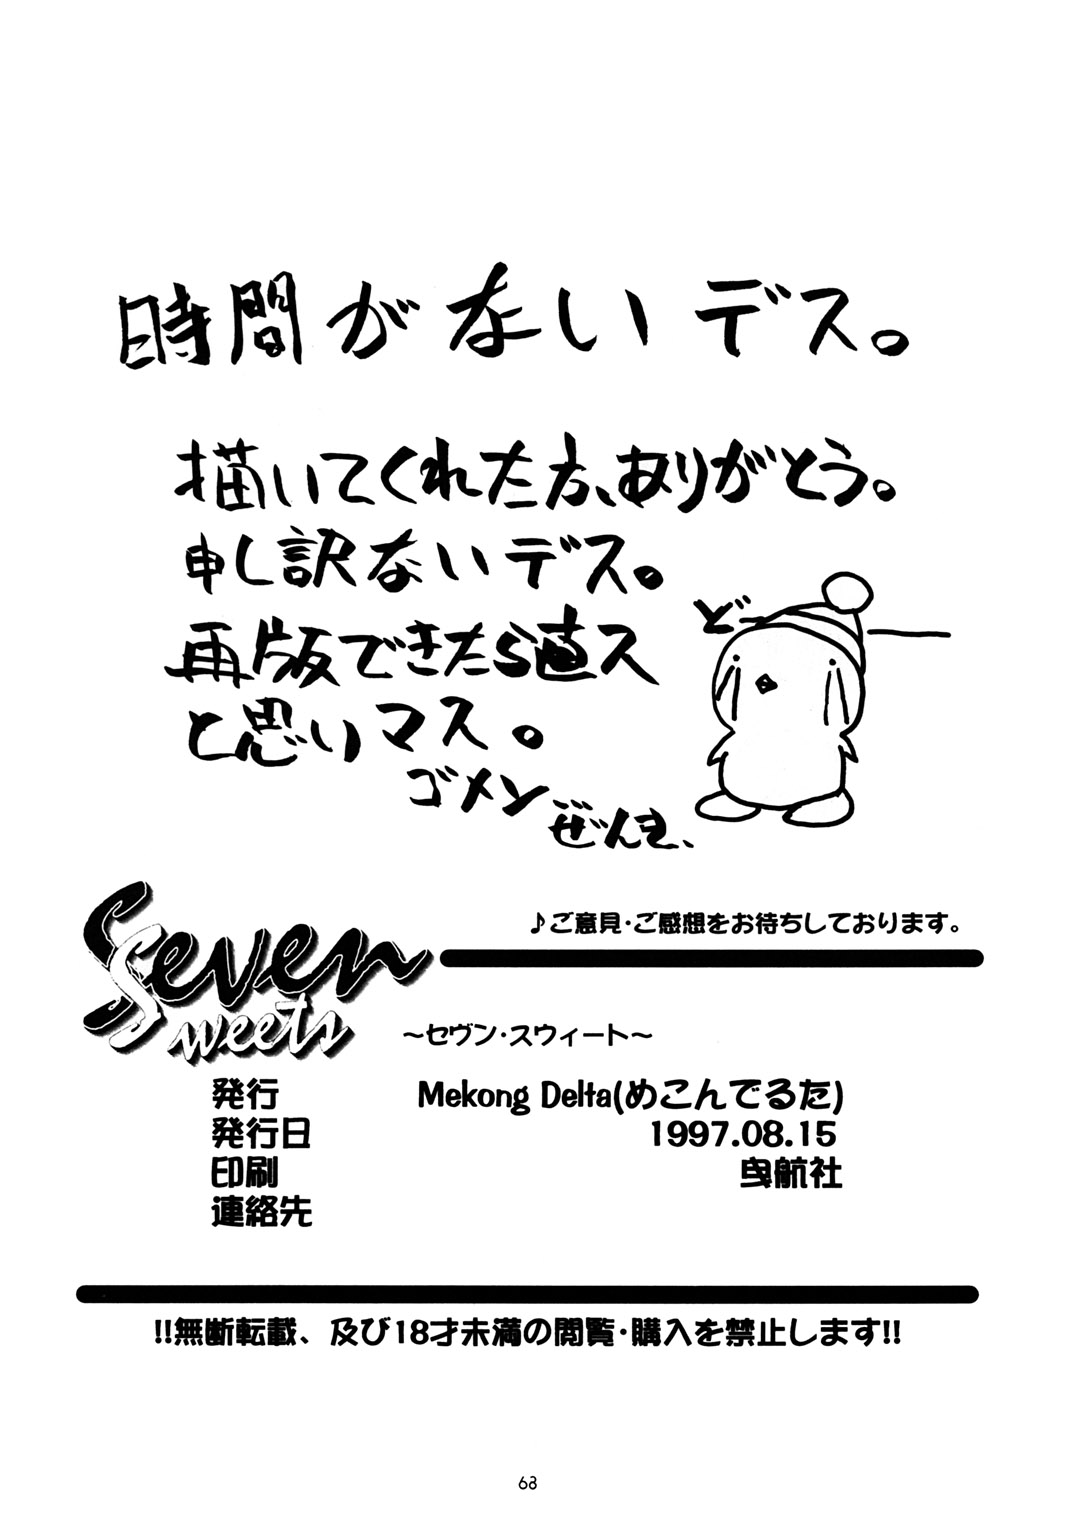 時間がないデス。
描いてくれた方、ありがとう。
申し訳ないデス。
再版できたら直ス
と思いマス。
ゴメン
ぜんき、
どー
Seven
Sweets
♪ご意見・ご感想をお待ちしております。
〜セヴン・スウィート〜
発行 Mekong Delta(めこんでるた)
発行日 1997.08.15
印刷 曳航社
連絡先
!!無断転載、及び18才未満の閲覧・購入を禁止します!!
68